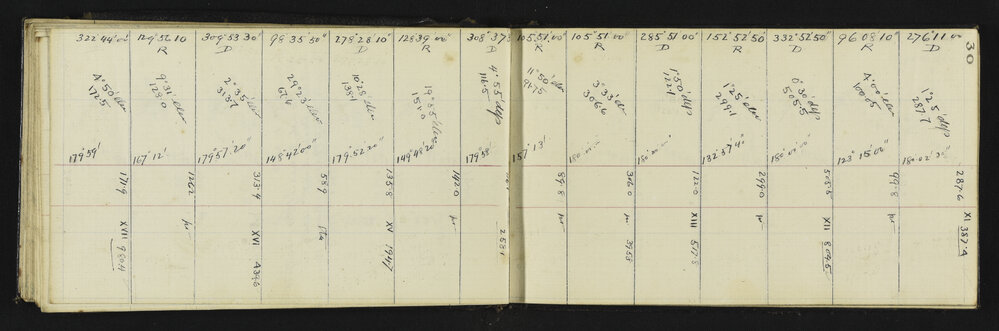 30
322°44'00"
129°52'10
R
309°53'30"
D
98°35'50"
278°28'10"
D
128°39'00"
R
308°37'
D
105°51'00"
R
105°51'00
R
285°51'00'
D
152°52'50'
R
332°52'50"
D
96°08'10
R
276°11'00
D
4°50' elev
172.5
9°31' elev
128.0
2°35' elev
313.7
29°23' elev
67.6
10°28'
138.1
19°55' elev
151.0
4°55' dep
116.5
11°50' elev
91.75
3°33' elev
306.6
1°50' dep
122.1
1°25' elev
299.1
0°30' dep
505.5
4°00' elev
100.05
1°25' dep
287.7
179°59'
167°12'
179°57'20"
148°42'00"
179°52'20"
149°48'20"
179°58'
157°13'
180.00.00
180.00.00
132°37'40"
180°00'00"
123°15'00"
180.02'30"
171.9
126.2
313.4
58.9
135.8
142.0
89.8
306.0
122.0
299.0
505.5
99.8
287.6
XVII
980.4
XVI
439.6
XV
194.7
258.1
395.8
XIII
517.8
XII
804.5
XI
387.4